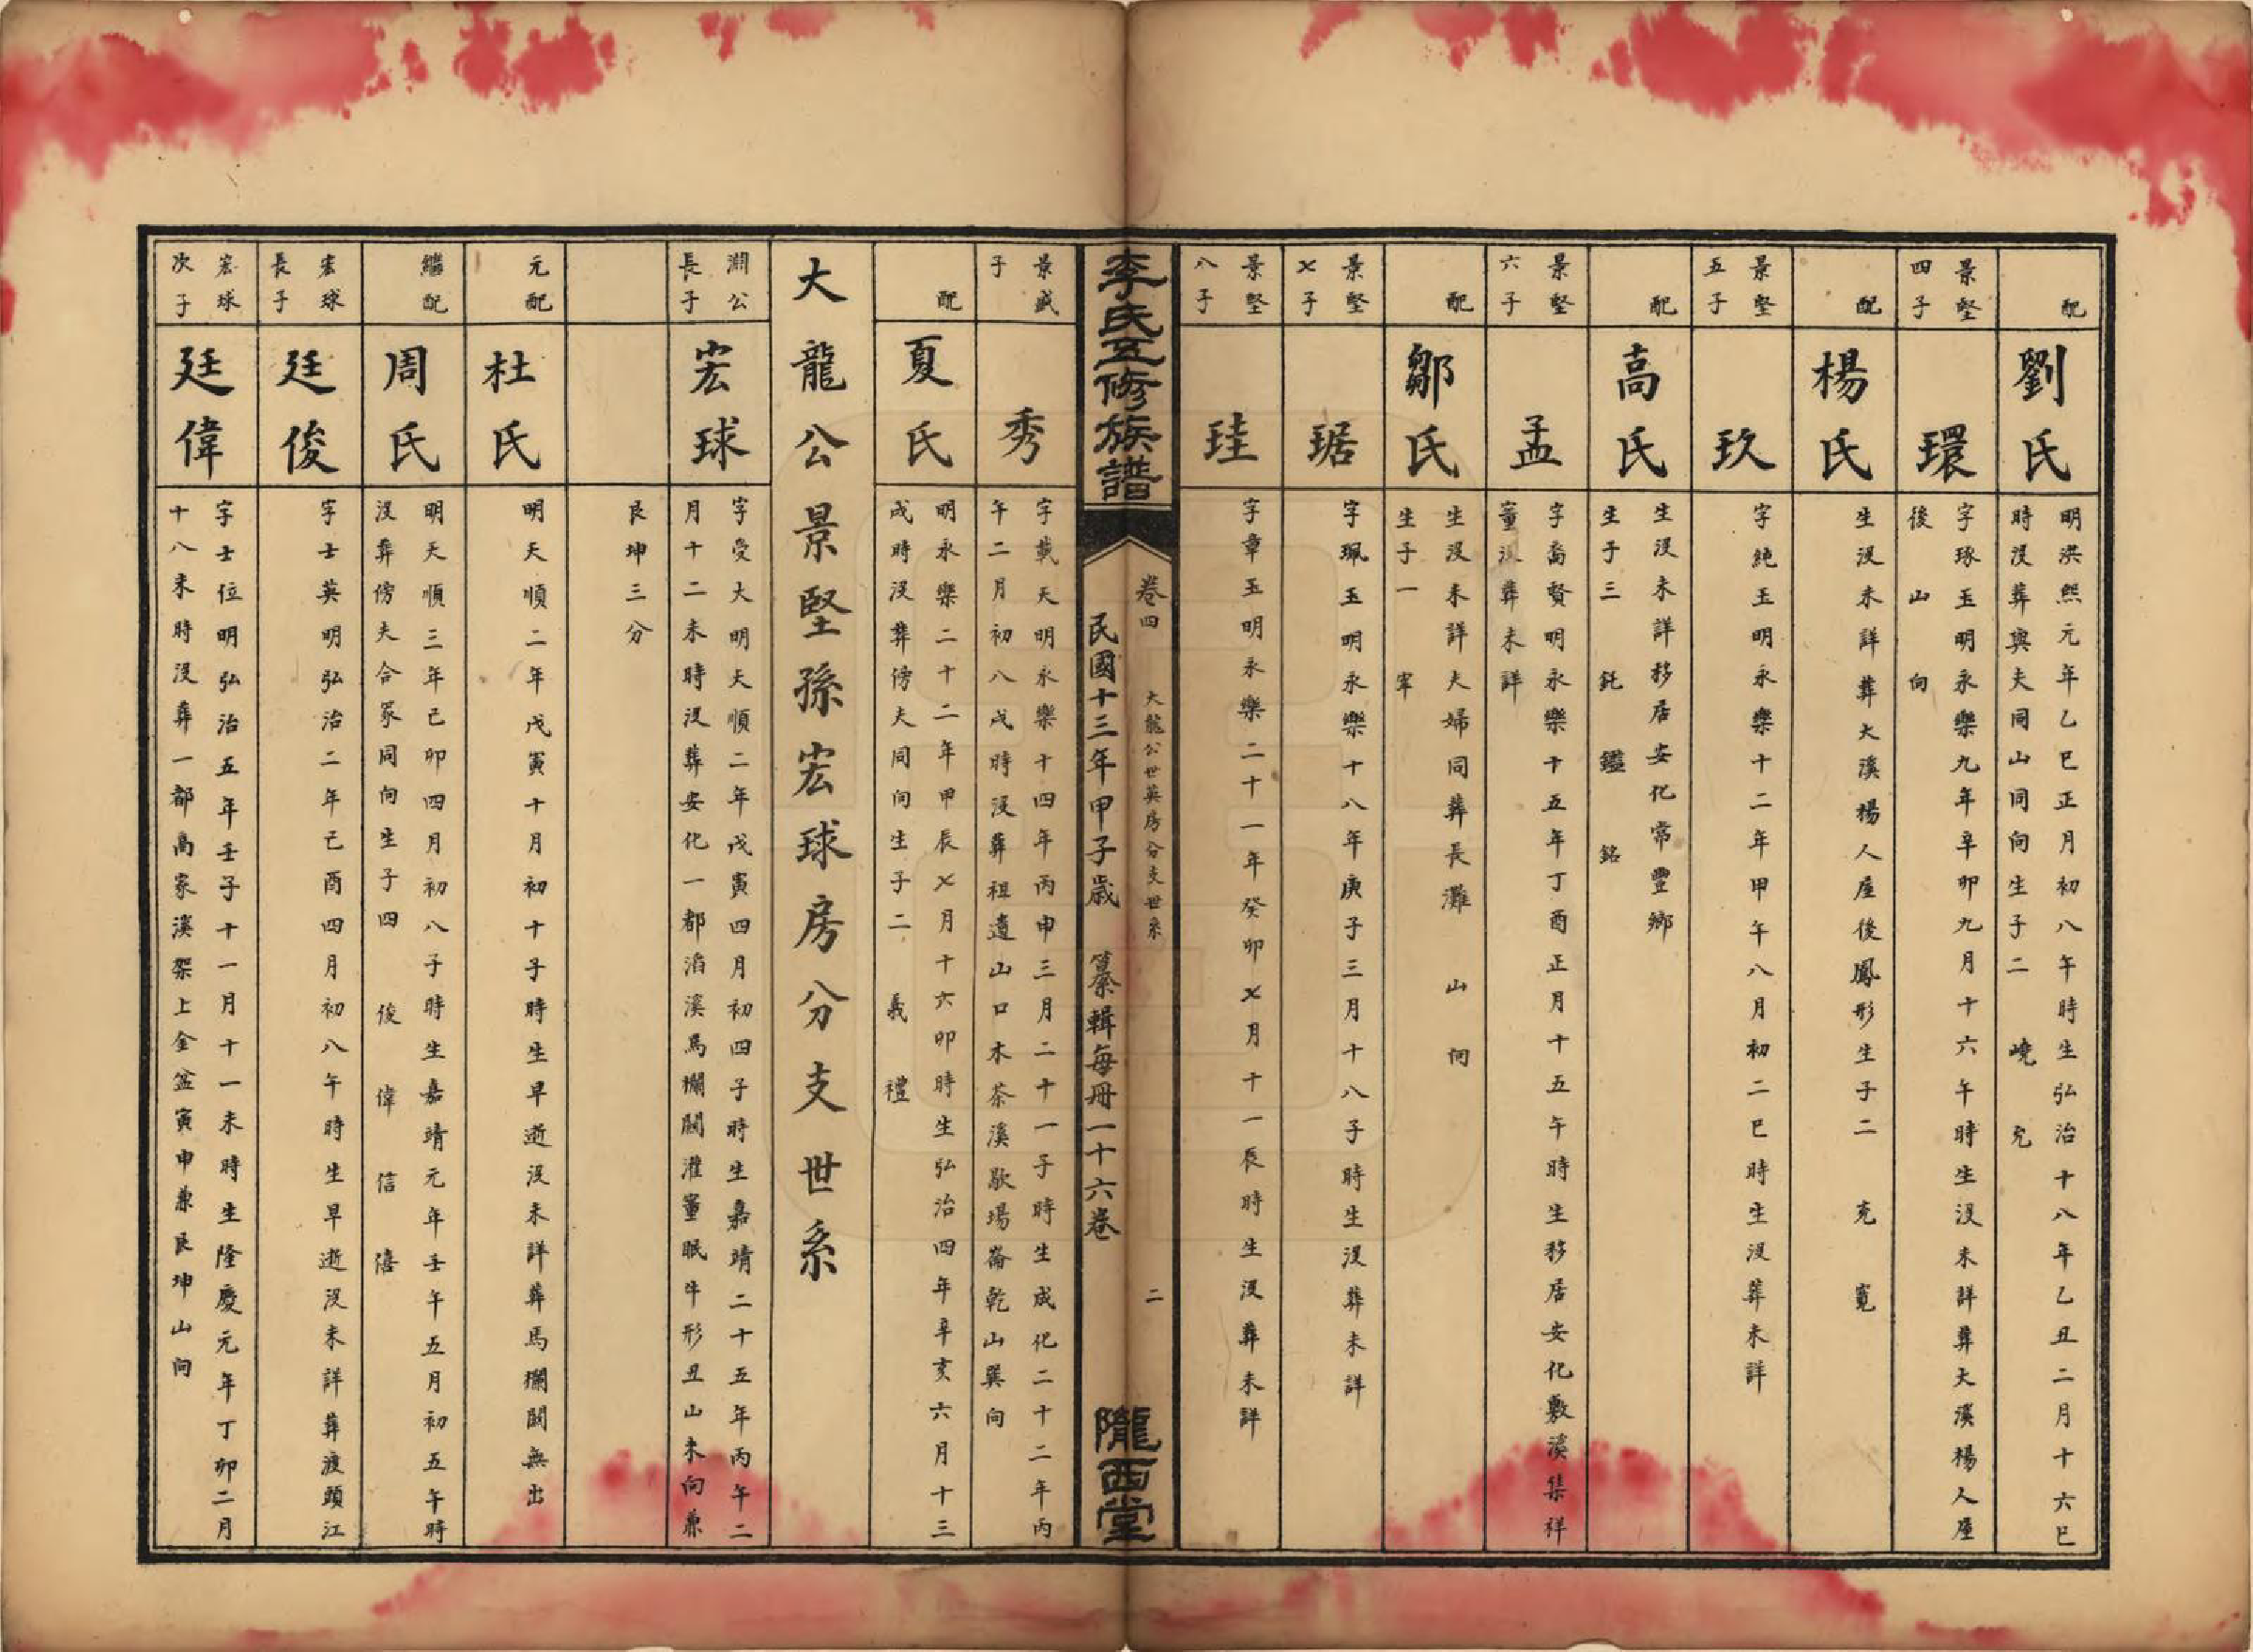 配
劉氏
明洪熙元年乙巳正月初八午時生弘治十八年乙丑二月十六巳
時沒葬與夫同山同向生子二　嶢　充
景堅
四子
環
字琢玉明永樂九年辛卯九月十六午時生沒未詳葬大溪楊人屋
後　山　向
配
楊氏
生沒未詳葬大溪楊人屋後鳳形生子二　克　寬
景堅
五子
玖
字純玉明永樂十二年甲午八月初二巳時生沒葬未詳
配
高氏
生沒未詳移居安化常豐鄉
生子三　鈋　鑑　銘
景堅
六子
孟
字喬賢明永樂十五年丁酉正月十五午時生移居安化敷溪集祥
董沒葬未詳
配
鄒氏
生沒未詳夫婦同葬長灘　山　向
生子一　寧
景堅
七子
琚
字珮玉明永樂十八年庚子三月十八子時生沒葬未詳
景堅
八子
珪
字章玉明永樂二十一年癸卯七月十一辰時生沒葬未詳
李氏五修族譜
卷四　大龍公世英房分支世系　二
民國十三年甲子歲　纂輯每冊一十六卷
隴西堂
景盛
子
秀
字載天明永樂十四年丙申三月二十一子時生成化二十二年丙
午二月初八戌時沒葬祖遺山口木茶溪歇場崙乾山巽向
配
夏氏
明永樂二十二年甲辰七月十六卯時生弘治四年辛亥六月十三
戌時沒葬傍夫同向生子二　義　禮
大龍公景堅孫宏球房分支世系
淵公
長子
宏球
字受大明天順二年戊寅四月初四子時生嘉靖二十五年丙午二
月十二未時沒葬安化一都滔溪馬欄關灌董眠牛形丑山未向兼
艮坤三分
元配
杜氏
明天順二年戊寅十月初十子時生早逝沒未詳葬馬欄關無出
繼配
周氏
明天順三年己卯四月初八子時生嘉靖元年壬午五月初五午時
沒葬傍夫合冢同向生子四　俊　偉　信　僖
宏球
長子
廷俊
字士英明弘治二年己酉四月初八午時生早逝沒未詳葬渡頭江
宏球
次子
廷偉
字士位明弘治五年壬子十一月十一未時生隆慶元年丁卯二月
十八未時沒葬一都高家溪架上金盆寅申兼艮坤山向